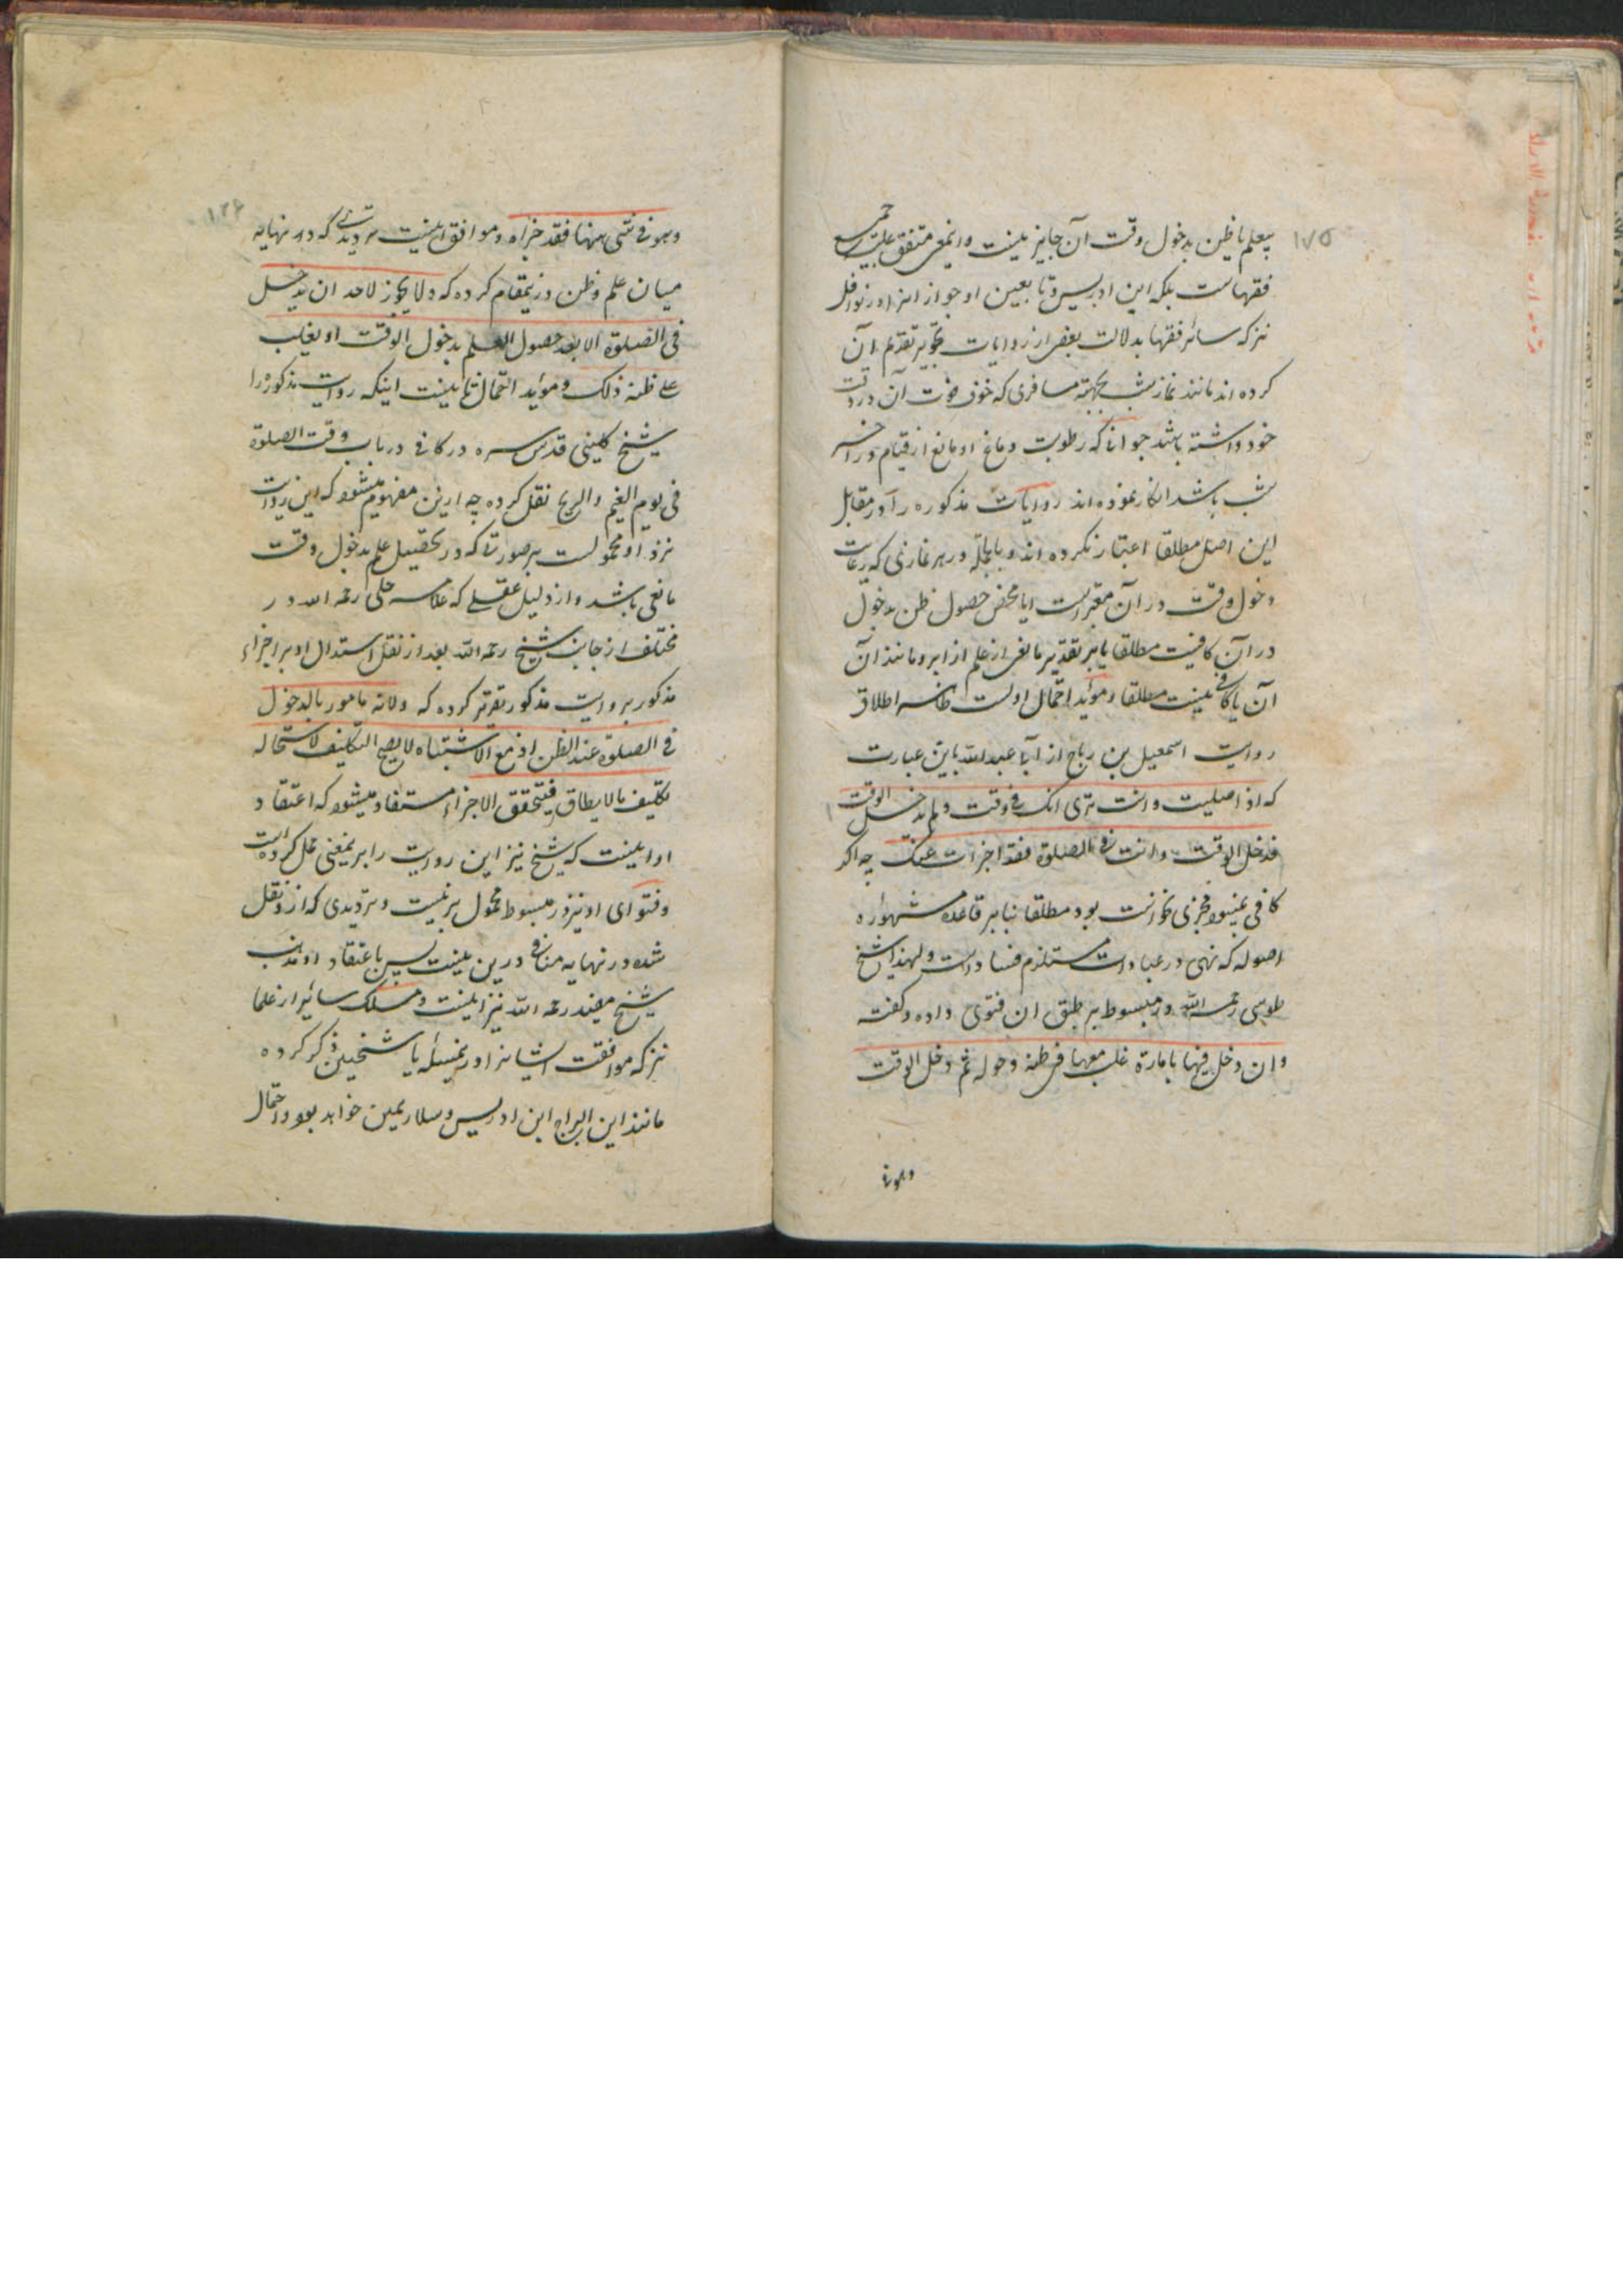 ۱۷۵
بیعلم یا ظن بدخول وقت آن جایز نیست و اینمعنی متفق علیه جمیع
فقهاست بلکه ابن ادریس و تابعین او جواز انرا در نوافل
نیز که سائر فقها بدلالت بعضی از روایات تجویز تقدیم آن
کرده اند مانند نماز شب بجهة مسافری که خوف فوت آن در وقت
خود داشته باشد و جوانی که رطوبت دماغ او مانع از قیام در آخر
شب باشد انکار نموده اند و روایات مذکوره را در مقابل
این اصل مطلقا اعتبار نکرده اند و بالجمله در هر نمازی که رعایت
دخول وقت در آن معتبر است ایا محض حصول ظن بدخول
در آن کافیست مطلقا یا بر تقدیر مانعی از علم از ابر و مانند آن
آن یا کافی نیست مطلقا و مؤید احتمال اولست ظاهر اطلاق
روایت اسمعیل بن رباح از ابا عبد الله باین عبارت
که اذا صلیت و انت تری انک فی وقت و لم یدخل الوقت
فدخل الوقت و انت فی الصلوة فقد اجزات عنک چه اگر
کافی نمیبود مجزی نتوانست بود مطلقا بنا بر قاعده مشهوره
اصولیه که نهی در عبادات مستلزم فساد است و لهذا شیخ
طوسی رحمه الله در مبسوط بر طبق ان فتوی داده و گفته
و ان دخل فیها بامارة غلب معها فی ظنه دخوله ثم دخل الوقت
وهو فی
۱۷۶
وهو فی شی منها فقد اجزاه و موافق اینست تردیدی که در نهایه
میان علم و ظن در ینمقام کرده که و لا یجوز لاحد ان یدخل
فی الصلوة الا بعد حصول العلم بدخول الوقت او یغلب
علی ظنه ذلک و مؤید احتمال ثانیست اینکه روایت مذکوره را
شیخ کلینی قدس سره در کافی در باب وقت الصلوة
فی یوم الغیم والریح نقل کرده چه ازین مفهوم میشود که این روایت
نزد او محمولست بر صورتی که در تحصیل علم بدخول وقت
مانعی باشد و از دلیل عقلی که علامه حلی رحمه الله در
مختلف از جانب شیخ رحمه الله بعد از نقل استدلال او بر اجزاء
مذکور بروایت مذکور تقریر کرده که و لانه مامور بالدخول
فی الصلوة عند الظن اذ مع الاشتباه لا یصح التکلیف لاستحاله
تکلیف ما لا یطاق فیتحقق الاجزاء مستفاد میشود که اعتقاد
او اینست که شیخ نیز این روایت را بر ینمعنی حمل کرده است
و فتوای او نیز در مبسوط محمول بر نیست و تردیدی که از و نقل
شده در نهایه منافی درین نیست پس باعتقاد او مذهب
شیخ مفید رحمه الله نیز اینست و مسلک سائر از علما
نیز که موافقت ایشانرا در ینمسئله با شیخین ذکر کرده
مانند ابن البراج و ابن ادریس و سلار همین خواهد بود و احتمال